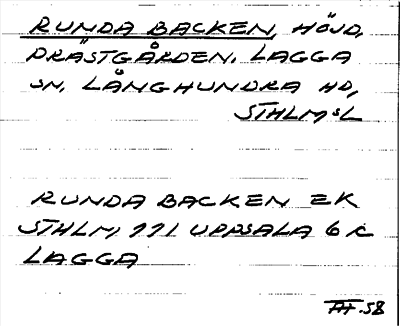 RUNDA BACKEN, HÖJD,
PRÄSTGÅRDEN. LAGGA
SN, LÅNGHUNDRA HD,
STHLMSL
RUNDA BACKEN EK
STHLM, 111 UPPSALA 6 C
LAGGA
-58